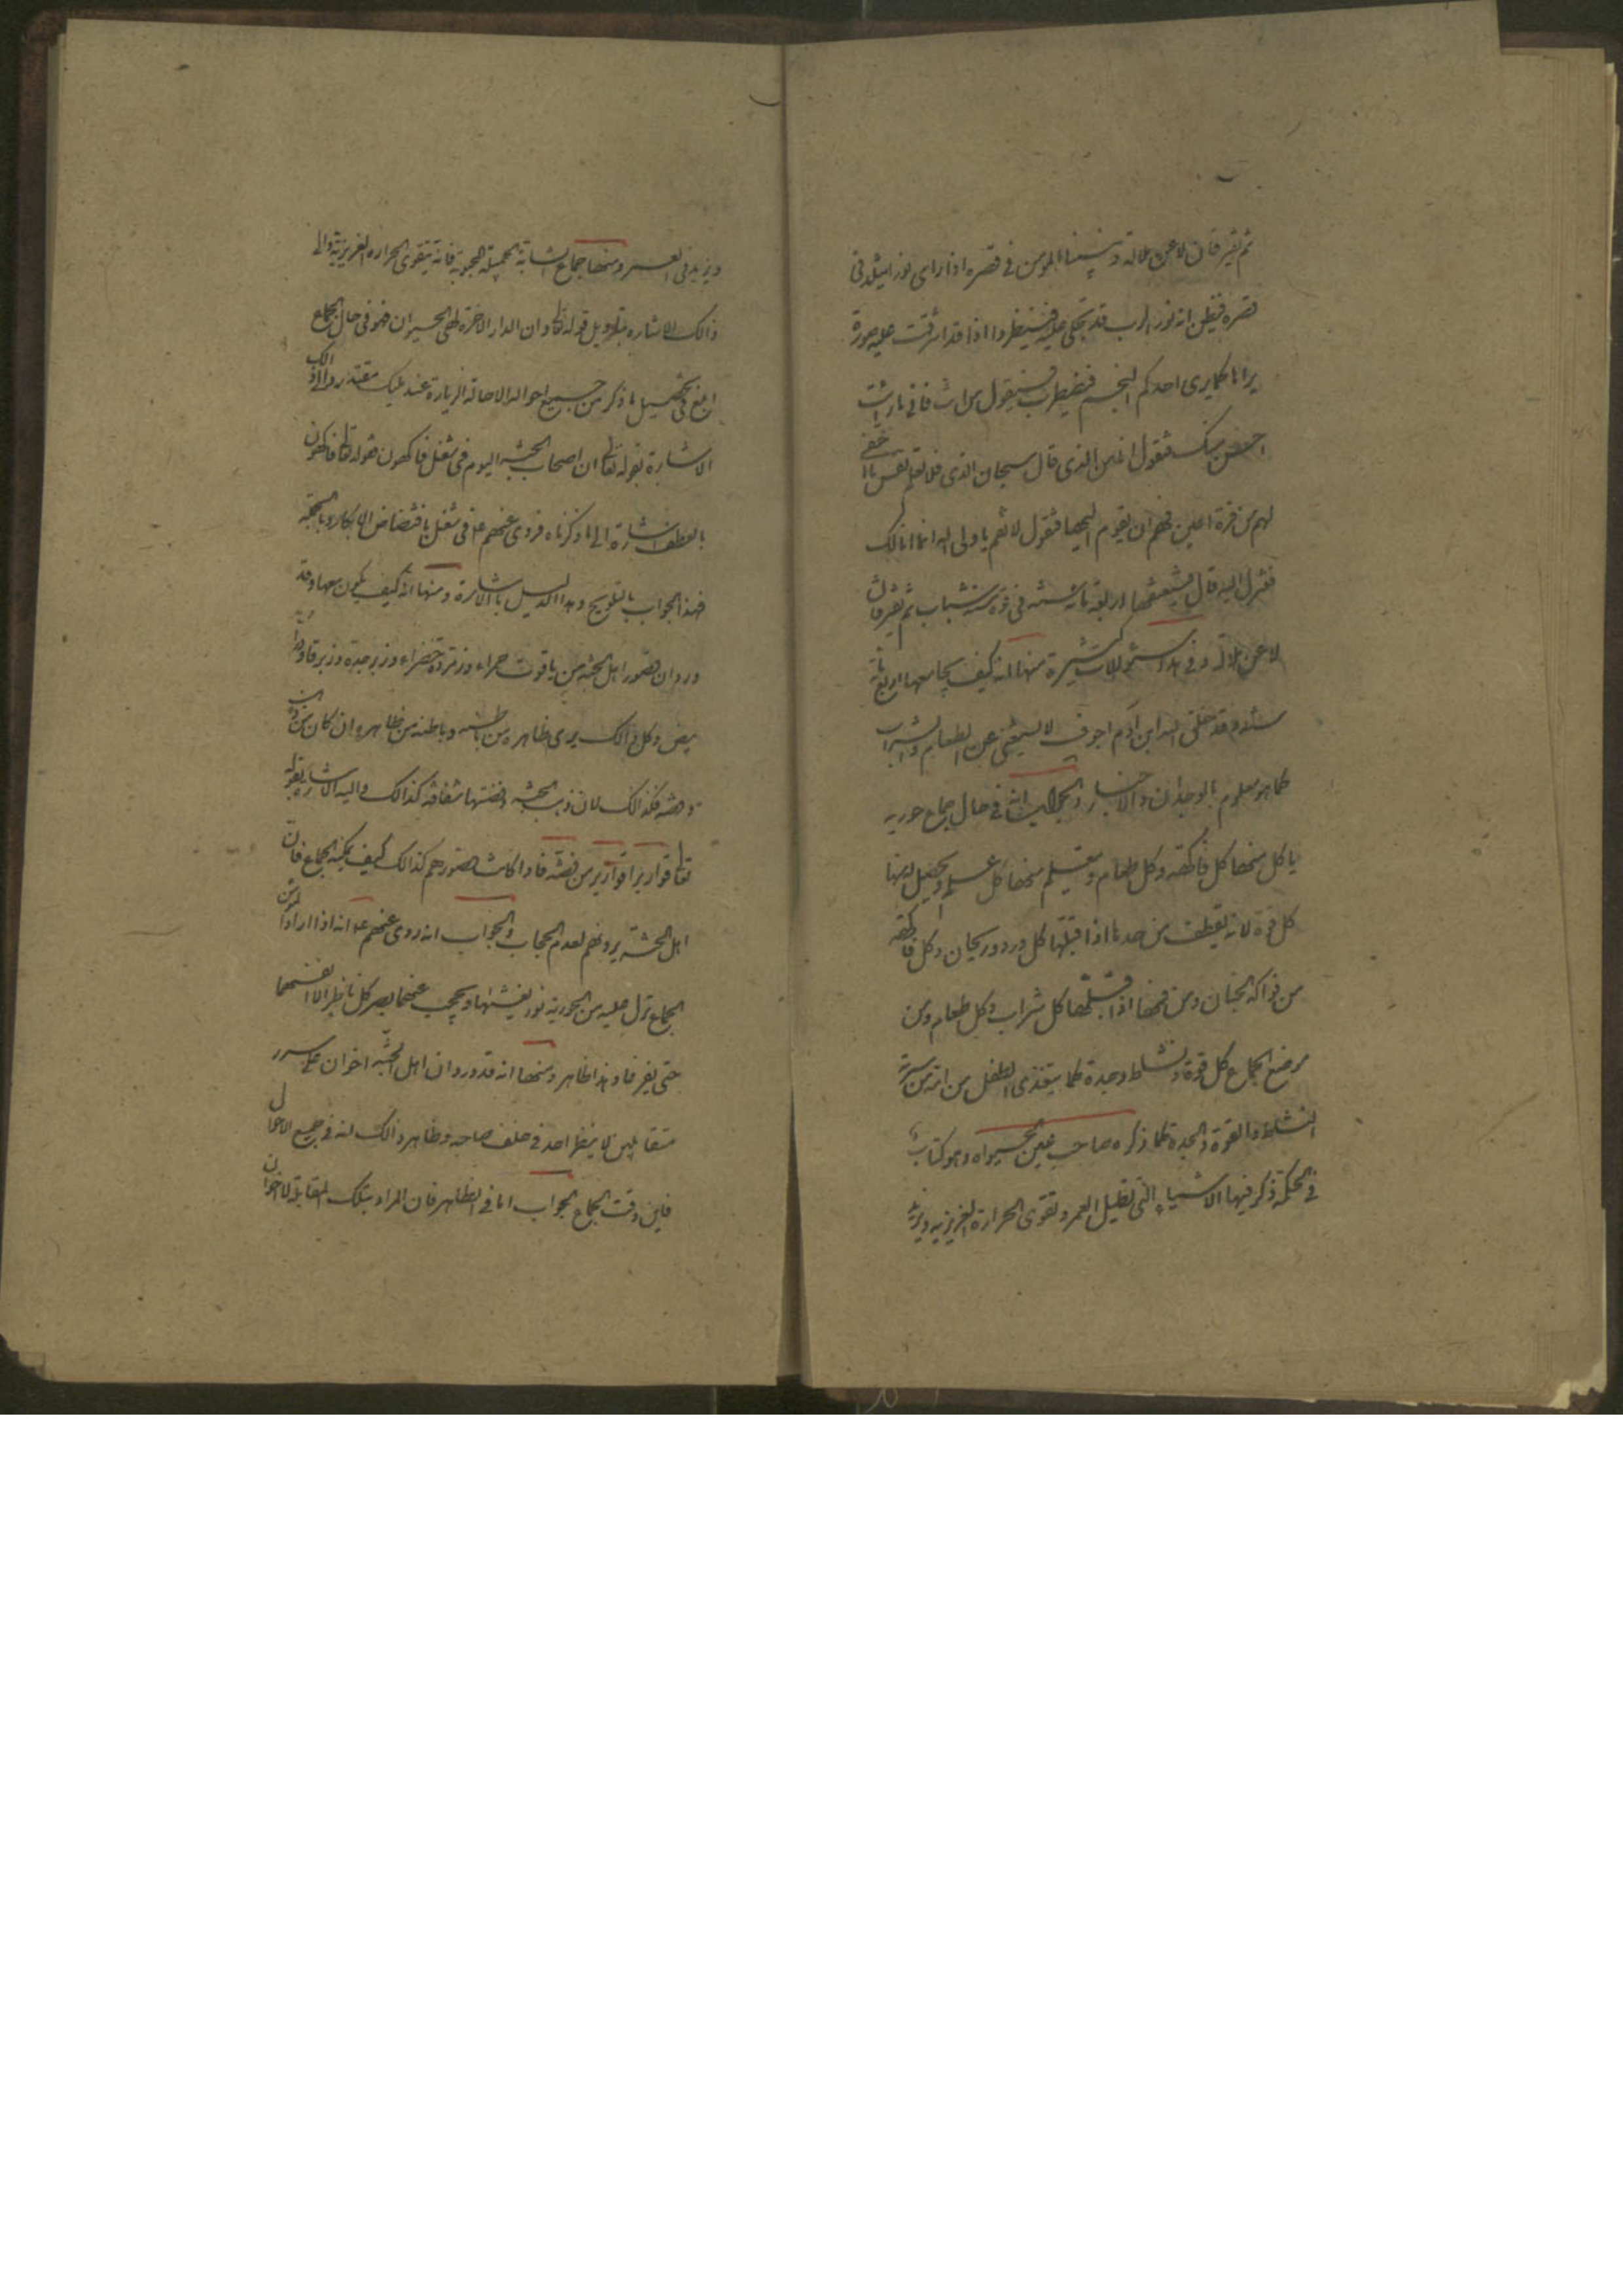 ثم يفترقان لا عن ملالة وبينما المؤمن في قصره اذا رأى نورا
قصره فيظن انه نور الرب قد تجلى عليه فينظر واذا قد اشرقت عليه حورية
كما يرى احدكم النجم فيضطرب فيقول من انت فاني ما رايت
احسن منك فتقول انا من الذي قال سبحانه الذي فلا تعلم نفس ما اخفي
لهم من قرة اعين فهم ان يقوم اليها فتقول لا تقم يا ولي الله انما انا لك
فتنزل اليه قال فيعتنقها اربعمائة سنة في قوة شباب ثم يفترقان
لا عن ملالة وفي هذا سئوالات كثيرة منها انه كيف يجامعها اربعمائة
سنة وقد خلق الله ابن آدم اجوف لا يستغني عن الطعام والشراب
كما هو معلوم بالوجدان والاخبار والجواب انه في حال جماع حورية
ياكل منها كل فاكهة وكل طعام ويتعلم منها كل علم ويحصل له منها
كل قوة لانه يقطف من خدها اذا قبلها كل ورد وريحان وكل فاكهة
من فواكه الجنان ومن فمها اذا قبلها كل شراب وكل طعام ومن
موضع الجماع كل قوة ونشاط وجدة كما يتغذى الطفل من امه من سرته
النشاط والقوة والجدة كما ذكره صاحب عين الحيواه وهو كتاب
في الحكمة ذكر فيها الاشياء التي تطيل العمر وتقوى الحرارة الغريزية ويزيد
ويزيد في العمر ومنها جماع الشابة الجميلة المحبوبة فانه يتقوى الحرارة الغريزية والى
ذالك الاشارة بتاويل قوله تعا وان الدار الاخرة لهي الحيوان فهو في حال الجماع
ابلغ في تحصيل ما ذكر من جميع احواله الا حالة الزيارة عند مليك مقتدر والى ذالك
الاشارة بقوله تعا ان اصحاب الجنة اليوم في شغل فاكهون فقوله تعا فاكهون
بالعطف اشارة الى ما ذكرناه فروي عنهم ع في شغل بافتضاض الابكار
فهذا الجواب بالتلويح وهذا الدليل بالاشارة ومنها انه كيف يكون معها وقد
ورد ان قصور اهل الجنة من ياقوت حمراء وزمردة خضراء وزبرجدة
بيض وكل ذالك يرى ظاهره من باطنه وباطنه من ظاهره وان كان من ذهب
وفضة فكذالك لان ذهب الجنة وفضتها شفافة كذالك واليه الاشارة بقوله
تعا قوارير قوارير من فضة فاذا كانت قصورهم كذالك كيف يمكنه الجماع فان
اهل الجنة يرونهم لعدم الحجاب والجواب انه روي عنهم ع انه اذا اراد المؤمن
الجماع نزل عليه من الحورية نور يغشيها ويحجب عنهما بصر كل ناظر الا انفسهما
حتى يفترقا وهذا ظاهر ومنها انه قد ورد ان اهل الجنة اخوان على سرر
متقابلين لا ينظر احد في خلف صاحبه وظاهر ذالك انه في جميع الاحوال
فاين وقت الجماع الجواب اما في الظاهر فان المراد بتلك المقابلة لاخوان